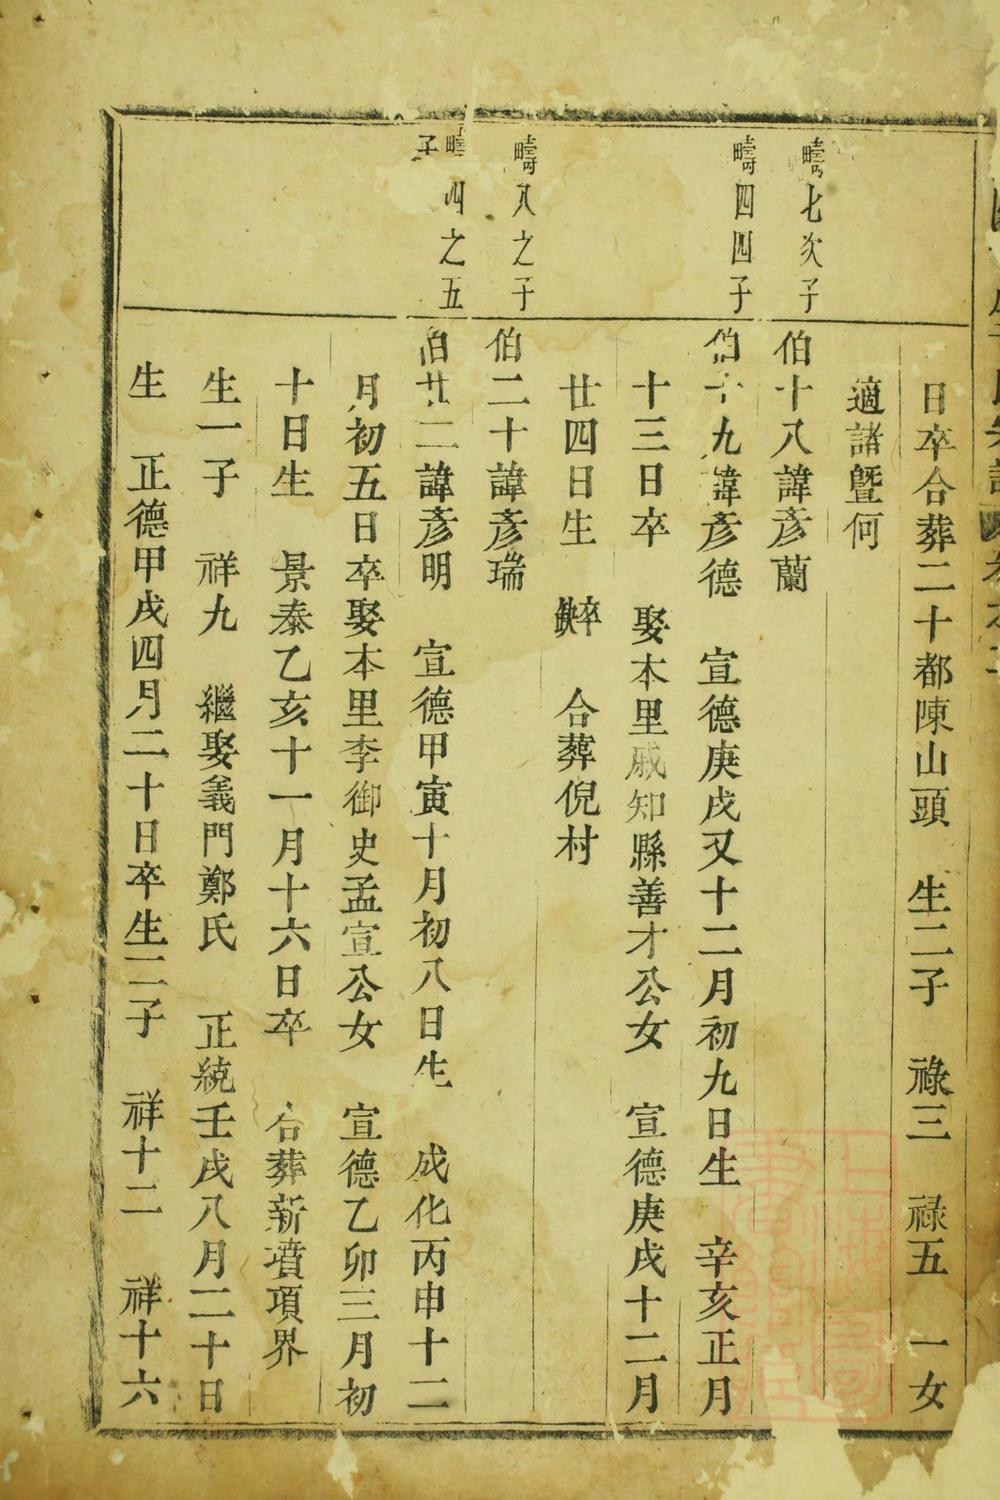 日卒合葬二十都陳山頭 生二子 祿三 祿五 一女
適諸暨何
疇七次子
伯十八諱彥蘭
疇四四子
伯十九諱彥德 宣德庚戌又十二月初九日生 辛亥正月
十三日卒 娶本里戚知縣善才公女 宣德庚戌十二月
廿四日生 卒缺 合葬倪村
疇八之子
伯二十諱彥瑞
疇四之五子
伯廿二諱彥明 宣德甲寅十月初八日生 成化丙申十二
月初五日卒娶本里李御史孟宣公女 宣德乙卯三月初
十日生 景泰乙亥十一月十六日卒 合葬新墳項界
生一子 祥九 繼娶義門鄭氏 正統壬戌八月二十日
生 正德甲戌四月二十日卒生二子 祥十二 祥十六